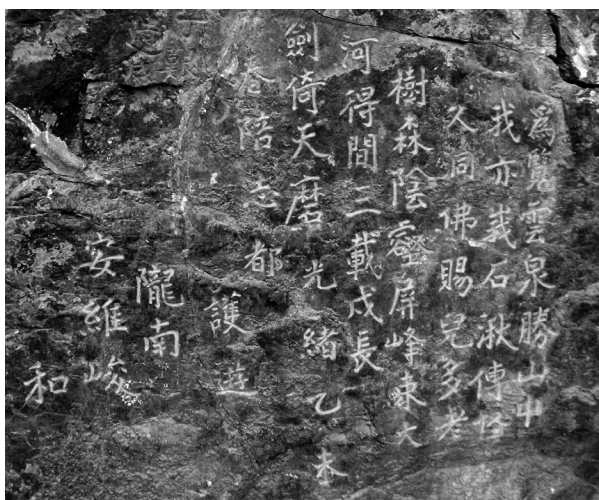 爲覽雲泉勝山中
我亦峩石湫傳怪
久洞佛賜兒多老
樹森陰壑屏峰束大
河得間三載戍長
劍倚天磨光緒乙未
春陪志都
護遊
隴南
安維峻
和